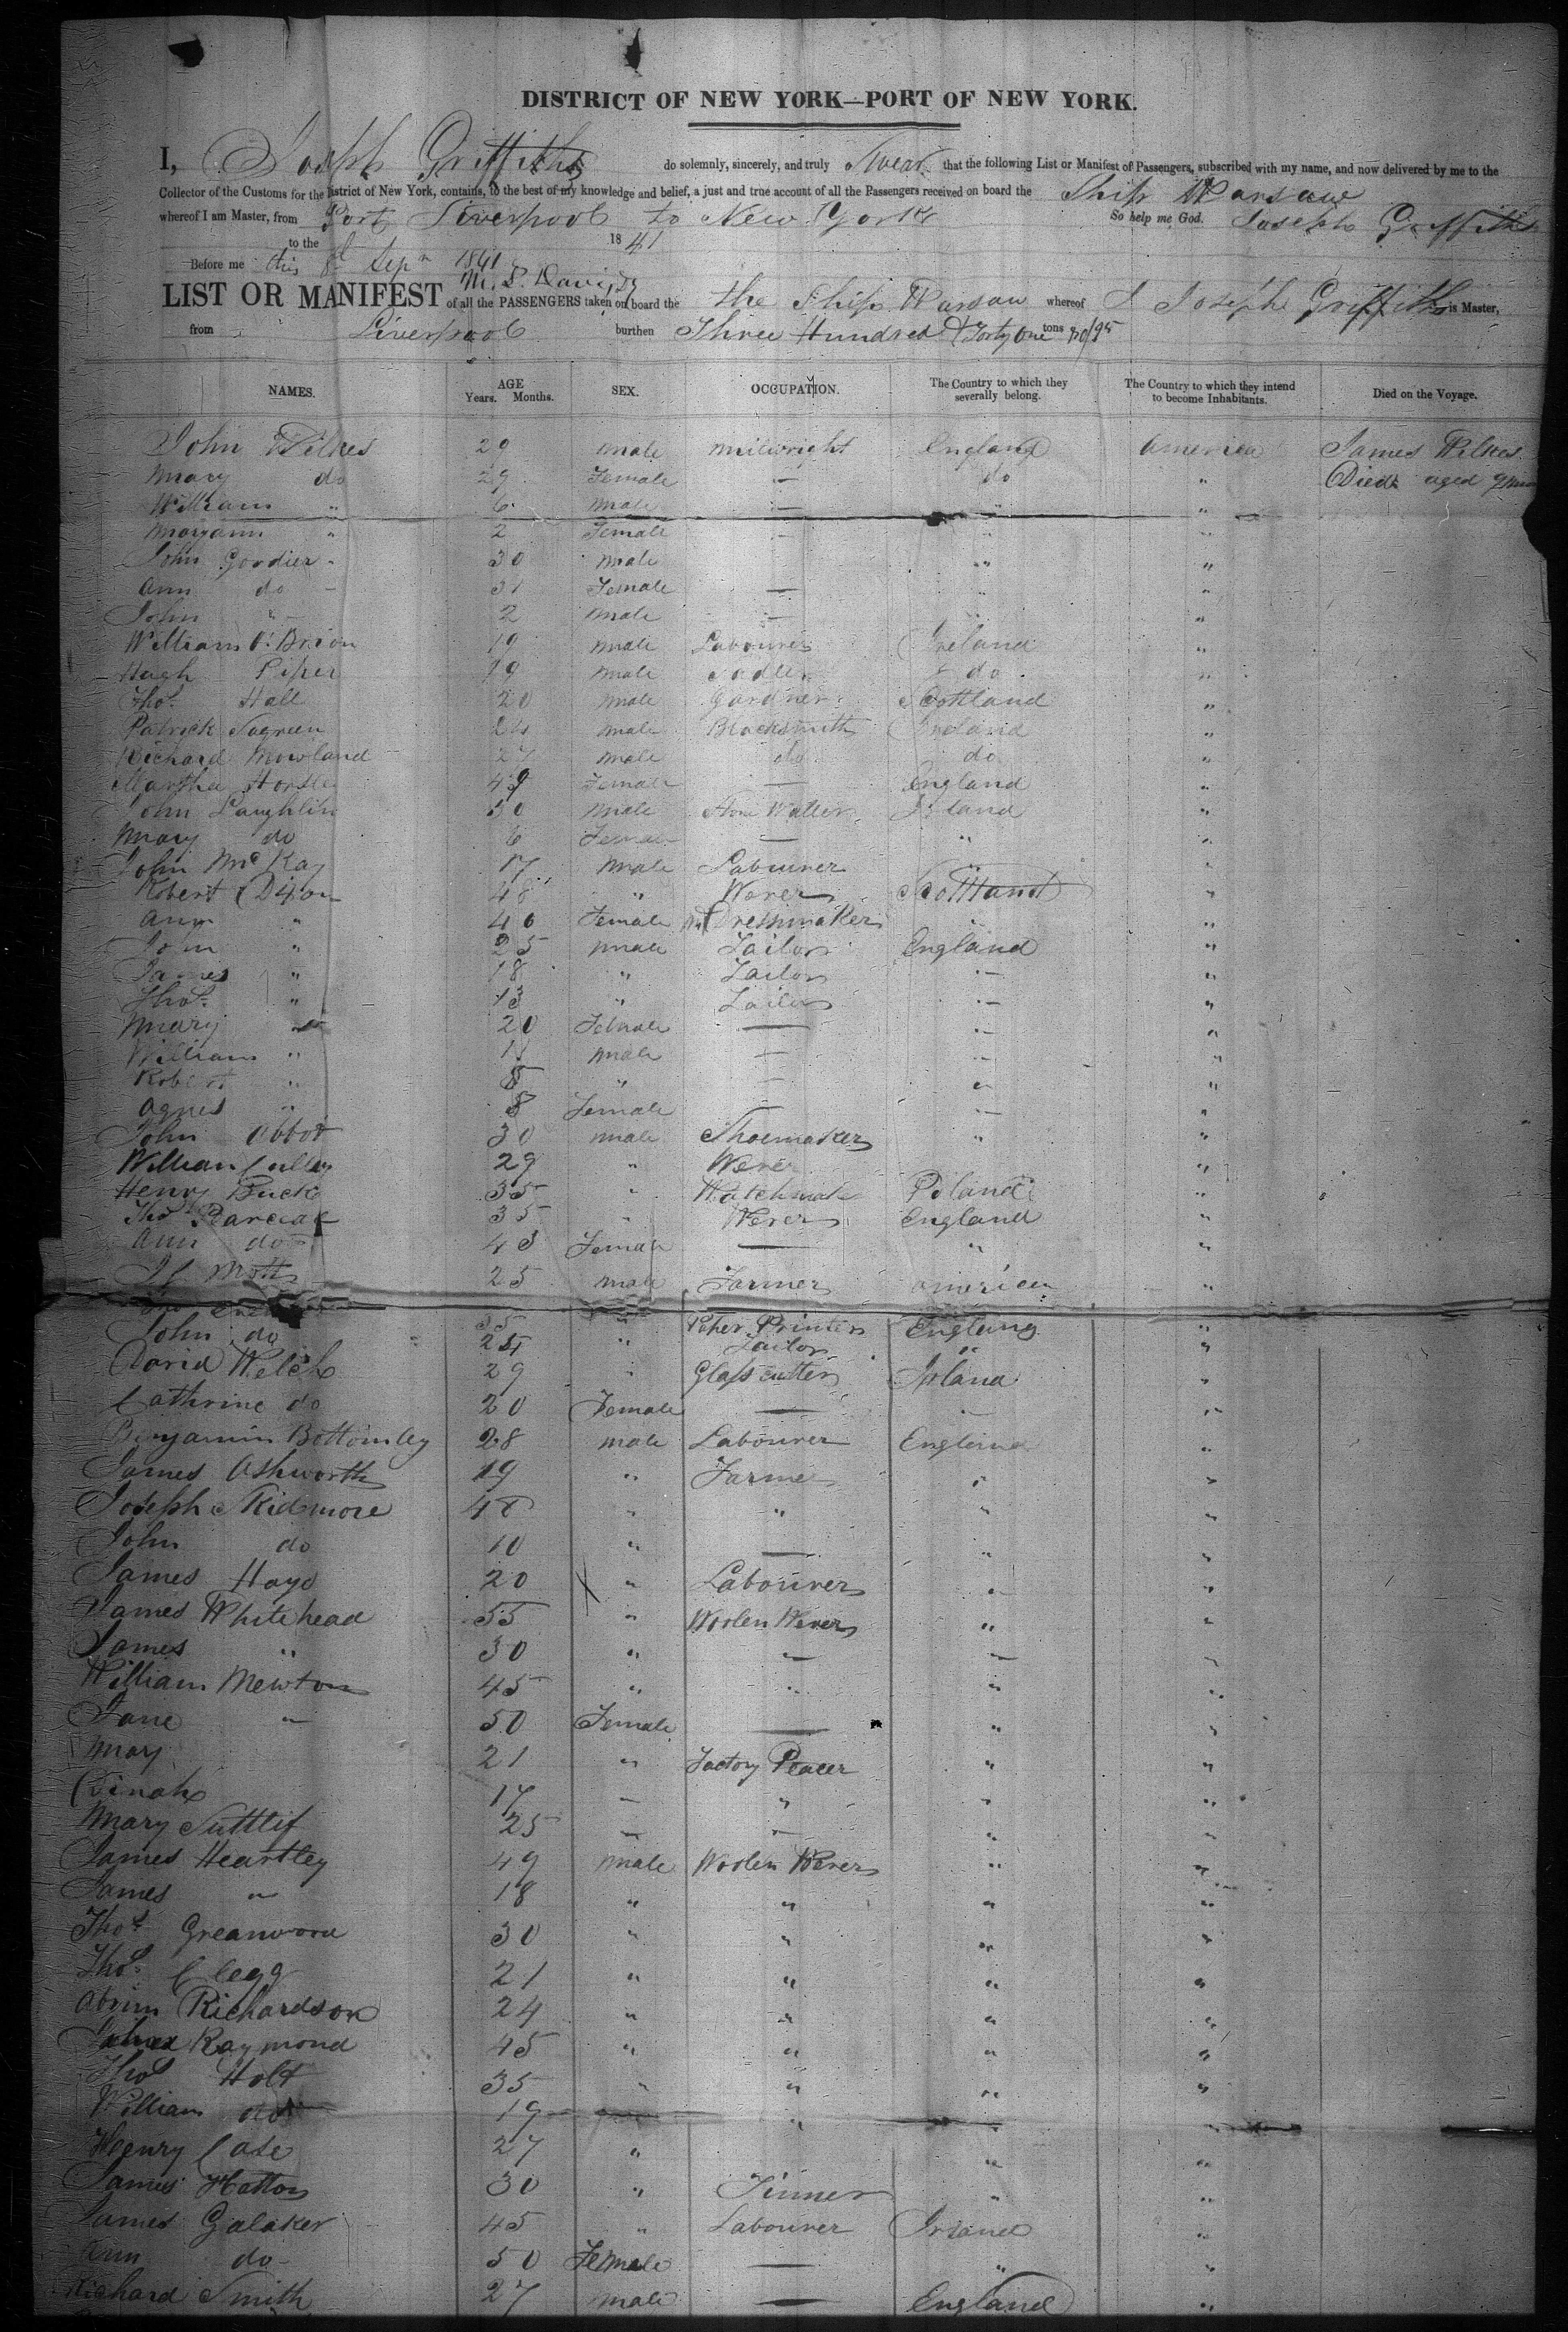 DISTRICT OF NEW YORK—PORT OF NEW YORK.
I, Joseph Griffiths do solemnly, sincerely, and truly Swear that the following List or Manifest of Passengers, subscribed with my name, and now delivered by me to the
Collector of the Customs for the District of New York, contains, to the best of my knowledge and belief, a just and true account of all the Passengers received on board the Ship Warsaw
whereof I am Master, from Port Liverpool to New York So help me God. Joseph Griffiths
to the 1841
Before me this Sepr 1841
LIST OR MANIFEST of all the PASSENGERS taken on board the the Ship Warsaw whereof I Joseph Griffiths is Master,
from Liverpool burthen Three Hundred & Forty One tons 30/95
NAMES. AGE Years. Months. SEX. OCCUPATION. The Country to which they severally belong. The Country to which they intend to become Inhabitants. Died on the Voyage.
John Wilkes 29 male millwright England America James Wilkes
Mary do 29 Female — do " Died aged
William " 6 male — " "
Maryann " 2 Female — " "
John Goodier 30 male " "
Ann do 31 Female — " "
John " 2 male — " "
William O'Brion 19 male Labourer Ireland "
Hugh Piper 19 male Sadler do "
Thos. Hall 20 male Gardner Scottland "
Patrick 24 male Blacksmith "
Richard Mowland 27 male do do "
Martha Female — England "
John Laughlin 50 male Stone Waller Irland "
Mary do 6 Female — " "
John McKay 17 male Labourer " "
Robert Dixon 48 " Wever Scottland "
Ann " 46 Female Dressmaker "
John " 25 male Tailor England "
James " 18 " Tailor — "
Thos. " 13 " Tailor — "
Mary 20 Female — — "
William " 11 male — — "
Robert " " — " "
Agnes " 8 Female — "
John Abbot 30 male Shoemaker " "
William 29 " Wever "
Henry Buck 35 " Watchmak Poland "
Thos 35 " Wever England "
Ann do 43 Female — " "
Motts 25 male Farmer American "
35 " Paper Printer England "
John do " Tailor " "
David Welch 29 " Glass cutter Irland "
Cathrine do 20 Female — — "
Benjamin Bottomley 28 male Labourer England "
James Ashworth 19 " Farmer " "
Joseph Skidmore 48 " " " "
John do 10 " — " "
James Hoyd 20 " Labourer " "
James Whitehead 55 " Woolen Wever " "
James " 30 " — — "
William Mewton 45 " " " "
Jane " 50 Female — " "
Mary 21 " Factory Peacer " "
Dinah 17 — " " "
Mary Suttlif 25 — — " "
James Heartley 49 male Woolen Wever " "
James " 18 " " " "
Thos. Greanwood 30 " " " "
Thos. Clegg 21 " " " "
Abrim Richardson 24 " " " "
Raymond 45 " " " "
Thos Holt 35 " " " "
William do 19 "
Heenry Case 27 " " "
James Hatton 30 " Tinner " "
James Galaker 45 " Labourer Irland "
Ann do 50 Female — " "
Richard Smith 27 male — England "